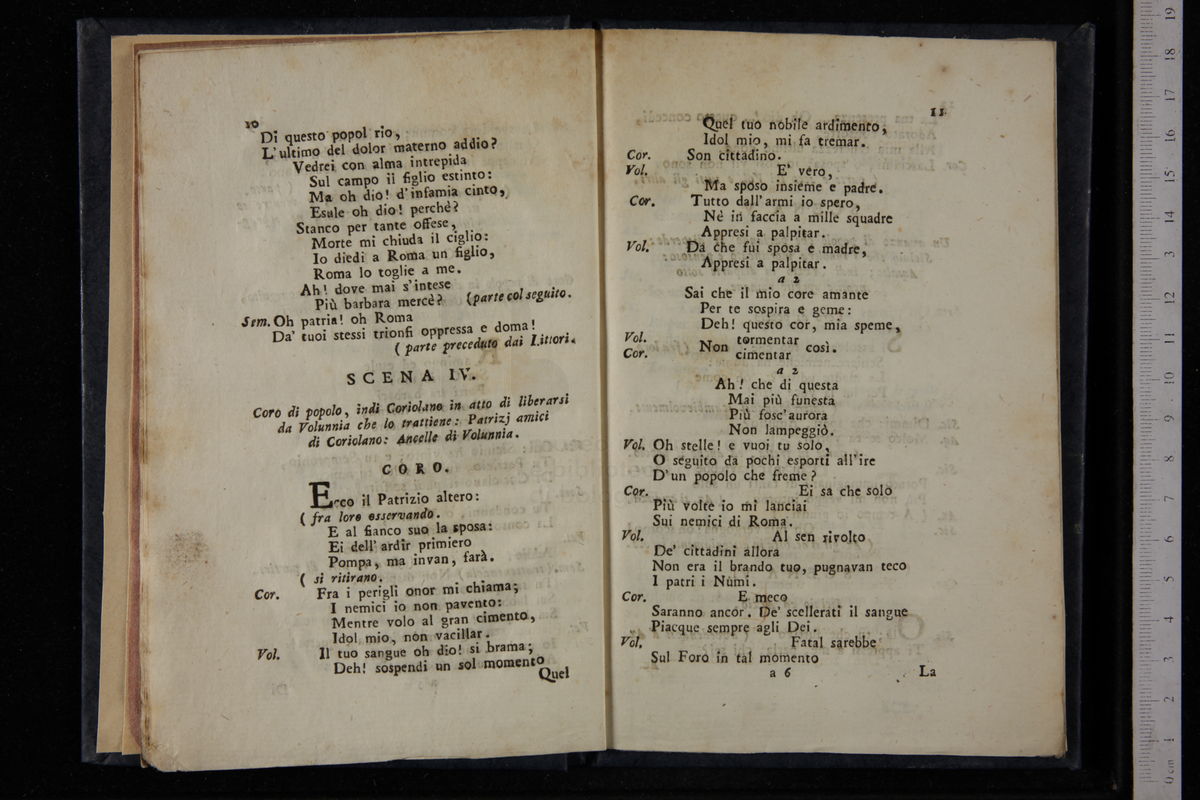 10
Di questo popol rio,
L'ultimo del dolor materno addio?
Vedrei con alma intrepida
Sul campo il figlio estinto:
Ma oh dio! d'infamia cinto,
Esule oh dio! perchè?
Stanco per tante offese,
Morte mi chiuda il ciglio:
Io diedi a Roma un figlio,
Roma lo toglie a me.
Ah! dove mai s'intese
Più barbara mercè? (parte col seguito.
Sem. Oh patria! oh Roma
Da' tuoi stessi trionfi oppressa e doma!
( parte preceduto dai Littori.
SCENA IV.
Coro di popolo, indi Coriolano in atto di liberarsi
da Volunnia che lo trattiene: Patrizj amici
di Coriolano: Ancelle di Volunnia.
CORO.
Ecco il Patrizio altero:
( fra loro osservando.
E al fianco suo la sposa:
Ei dell'ardir primiero
Pompa, ma invan, farà.
( si ritirano.
Cor. Fra i perigli onor mi chiama;
I nemici io non pavento:
Mentre volo al gran cimento,
Idol mio, non vacillar.
Vol. Il tuo sangue oh dio! si brama;
Deh! sospendi un sol momento
Quel
11
Quel tuo nobile ardimento,
Idol mio, mi fa tremar.
Cor. Son cittadino.
Vol. E' vero,
Ma sposo insieme e padre.
Cor. Tutto dall'armi io spero,
Nè in faccia a mille squadre
Appresi a palpitar.
Vol. Da che fui sposa e madre,
Appresi a palpitar.
a 2
Sai che il mio core amante
Per te sospira e geme:
Deh! questo cor, mia speme,
Vol. tormentar
Non così.
Cor. cimentar
a 2
Ah! che di questa
Mai più funesta
Più fosc'aurora
Non lampeggiò.
Vol. Oh stelle! e vuoi tu solo,
O seguito da pochi esporti all'ire
D'un popolo che freme?
Cor. Ei sa che solo
Più volte io mi lanciai
Sui nemici di Roma.
Vol. Al sen rivolto
De' cittadini allora
Non era il brando tuo, pugnavan teco
I patri i Numi.
Cor. E meco
Saranno ancor. De' scellerati il sangue
Piacque sempre agli Dei.
Vol. Fatal sarebbe
Sul Foro in tal momento
a 6 La
0 cm 1 2 3 4 5 6 7 8 9 10 11 12 13 14 15 16 17 18 19